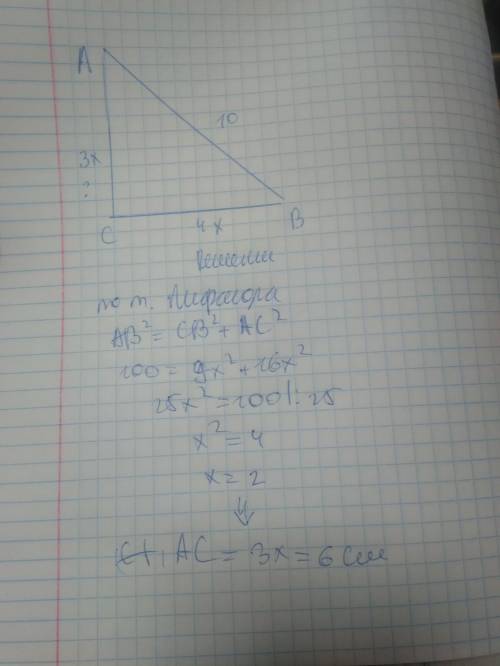 A
10
3x
?
C
4x
B
Решение
по т. Пифагора
AB² = CB² + AC²
100 = 9x² + 16x²
25x² = 100 | : 25
x² = 4
x = 2
⇓
AC = 3x = 6 см